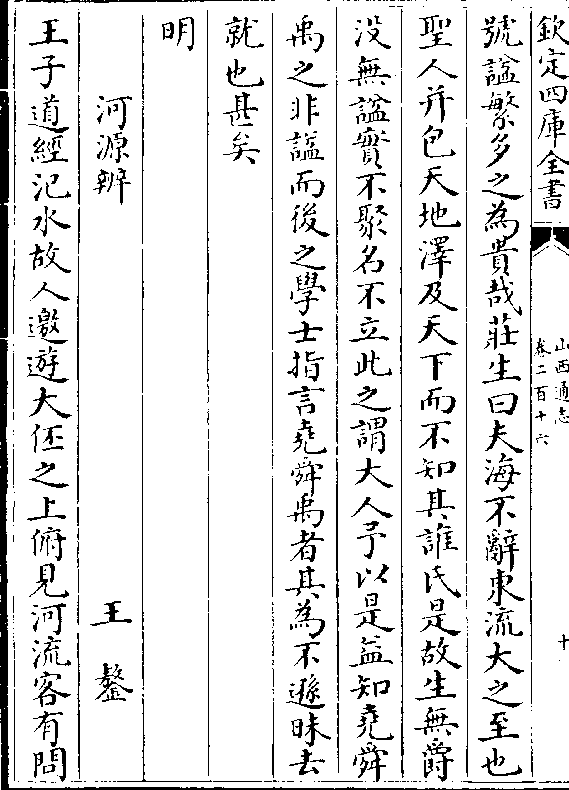 欽定四庫全書
山西通志
卷二百十六
十
號諡繁多之為貴哉莊生曰夫海不辭東流大之至也
聖人并包天地澤及天下而不知其誰氏是故生無爵
沒無諡實不聚名不立此之謂大人予以是益知堯舜
禹之非諡而後之學士指言堯舜禹者其為不遜昧去
就也甚矣
明
河源辨
王鏊
王子道經汜水故人邀遊大伾之上俯見河流客有問